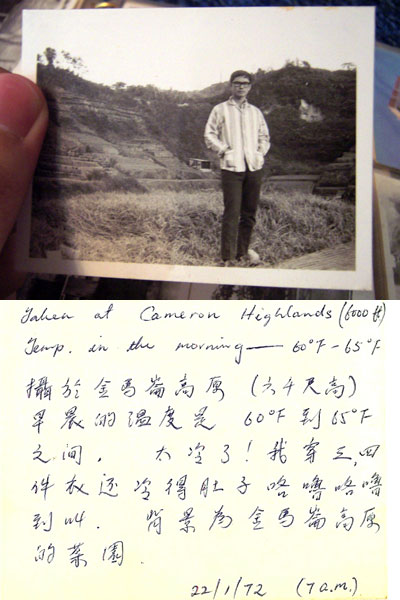 Taken at Cameron Highlands (6000 ft)
Temp. in the morning — 60°F - 65°F
攝於金馬崙高原 (六千尺高)
早晨的溫度是 60°F 到 65°F
之间, 太冷了! 我穿三,四
件衣还冷得肚子咯嚕咯嚕
到叫. 背景為金馬崙高原
的菜園.
22/1/72 (7 a.m.)